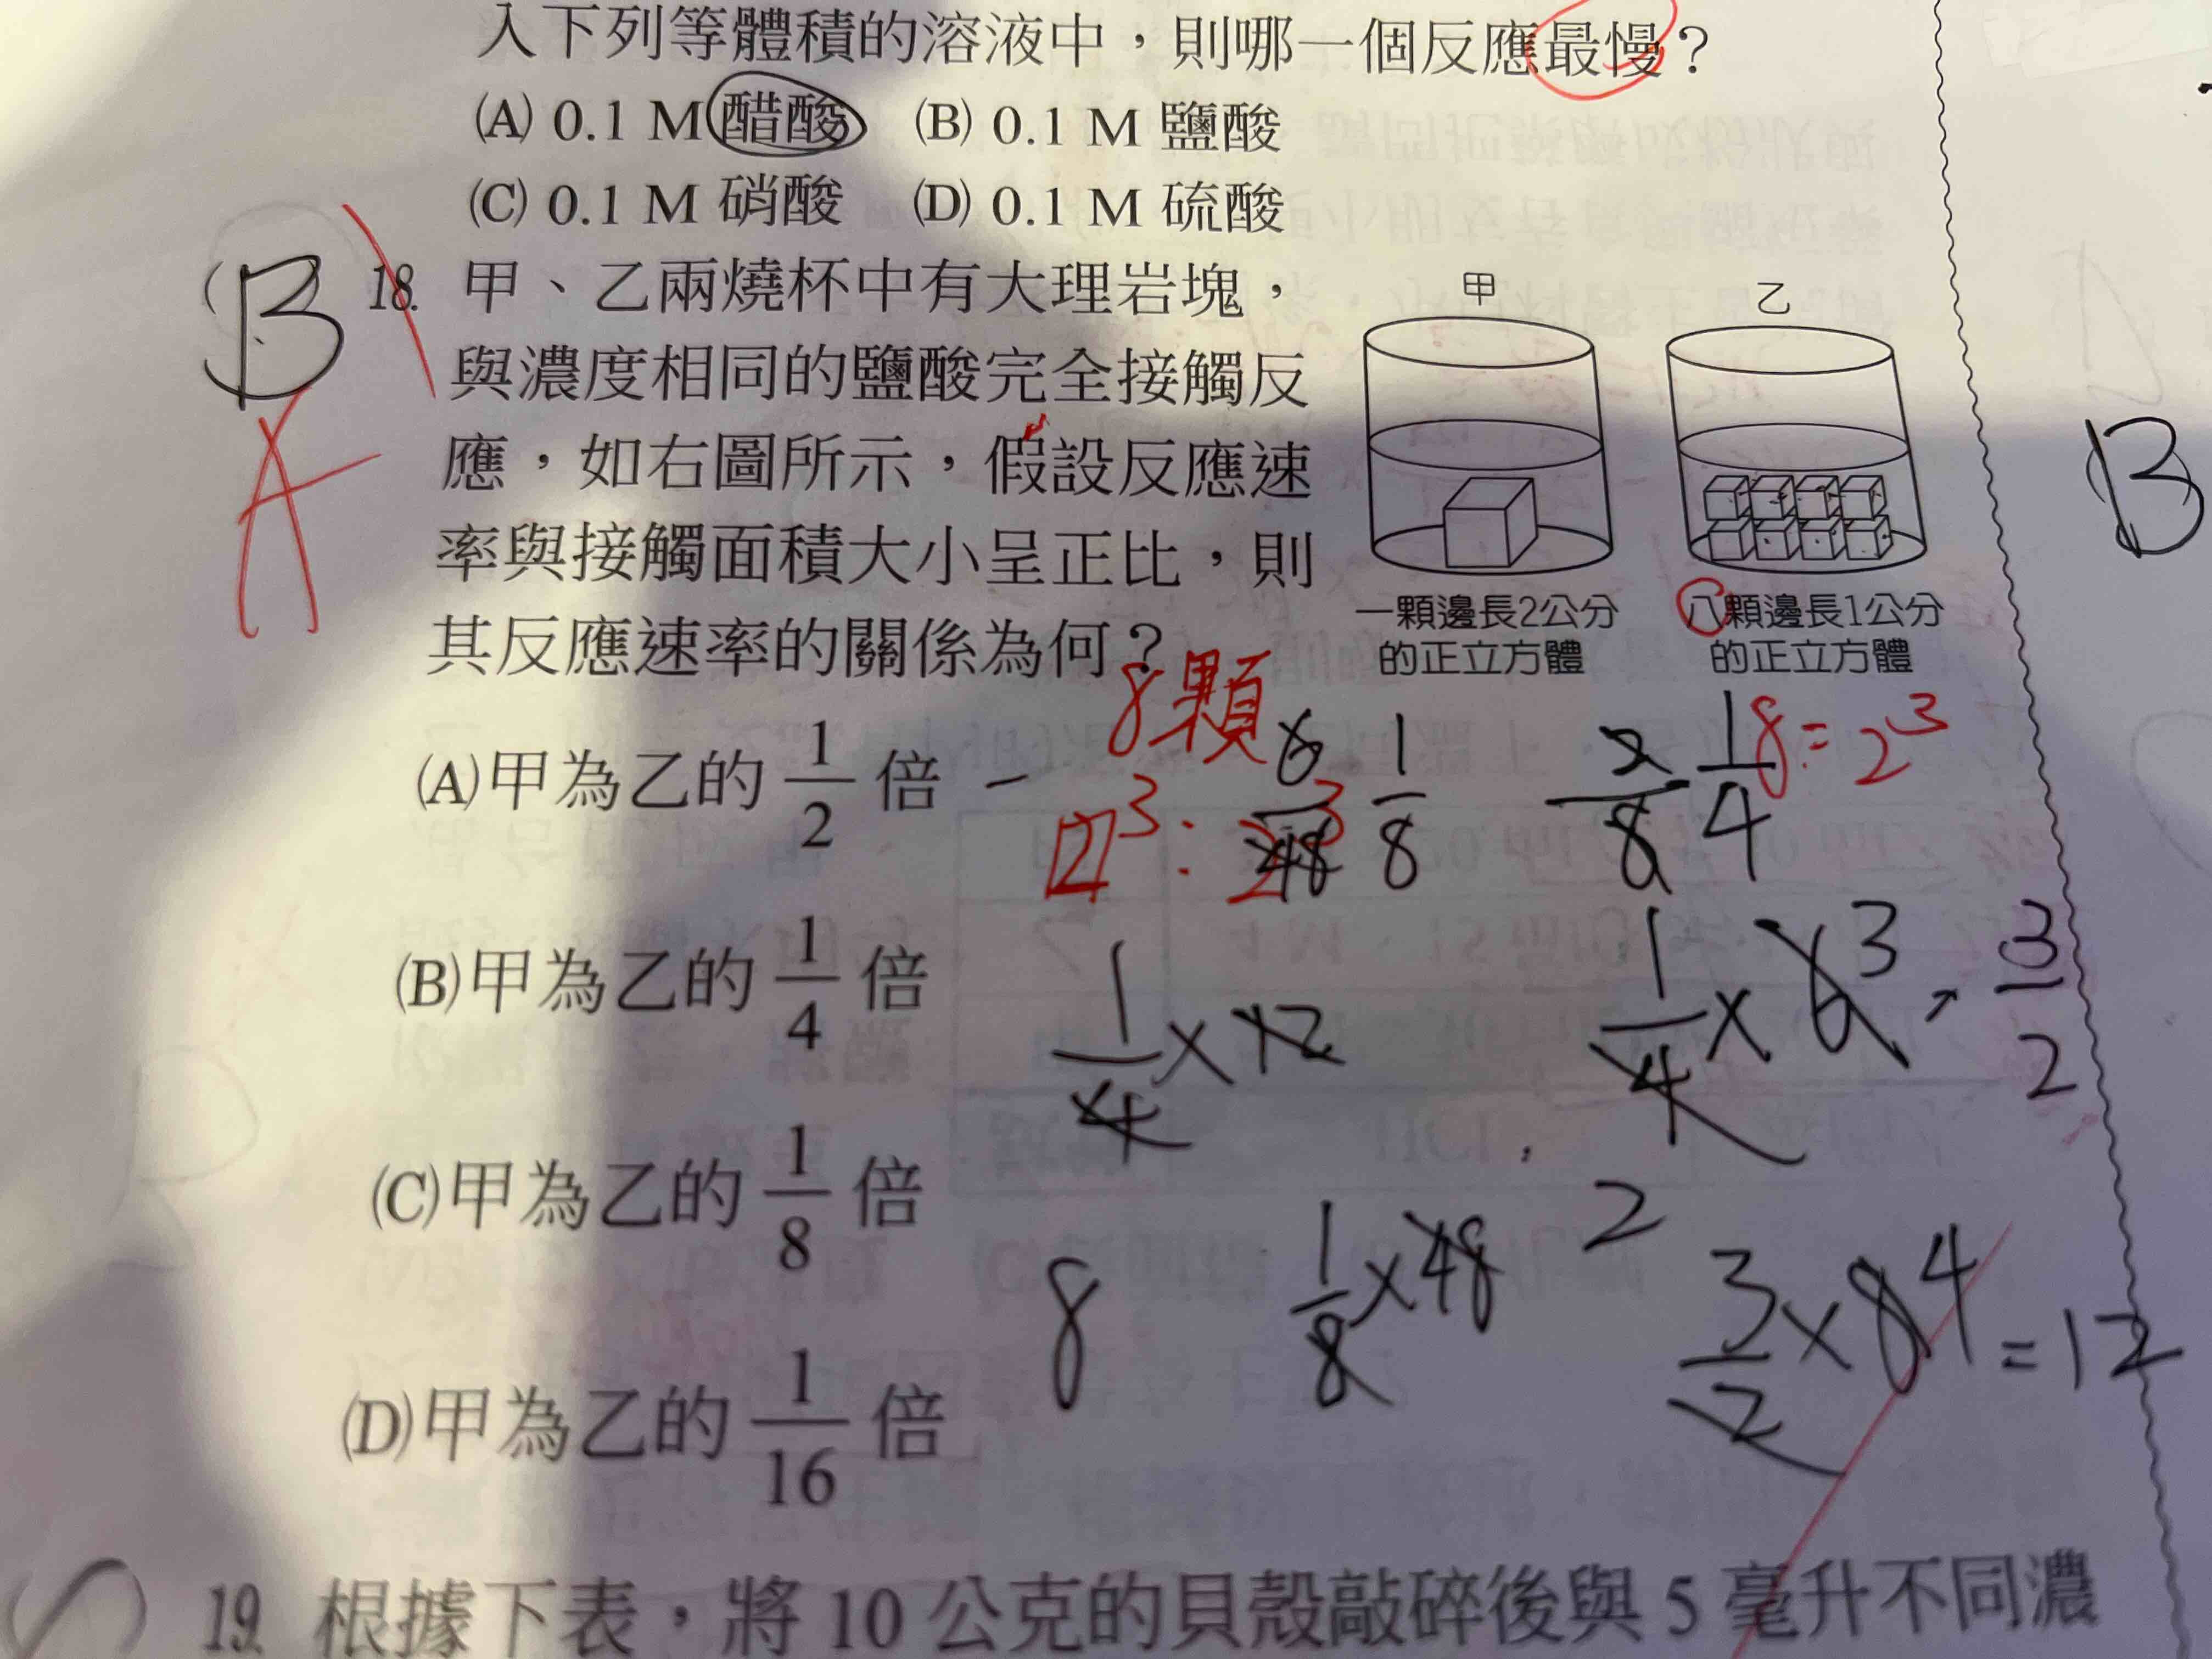 入下列等體積的溶液中，則哪一個反應最慢？
(A) 0.1 M 醋酸 (B) 0.1 M 鹽酸
(C) 0.1 M 硝酸 (D) 0.1 M 硫酸
(B) 18. 甲、乙兩燒杯中有大理岩塊，
與濃度相同的鹽酸完全接觸反
應，如右圖所示，假設反應速
率與接觸面積大小呈正比，則
其反應速率的關係為何？
A
甲
乙
一顆邊長2公分
的正立方體
八顆邊長1公分
的正立方體
B
(A)甲為乙的 1/2 倍
(B)甲為乙的 1/4 倍
(C)甲為乙的 1/8 倍
(D)甲為乙的 1/16 倍
8顆
6/48 1/8
2/8 1/4
8=2³
1/4×12
1/4×6 3 3/2
8
1/8×48
2
3/2×8 4=12
19. 根據下表，將 10 公克的貝殼敲碎後與 5 毫升不同濃